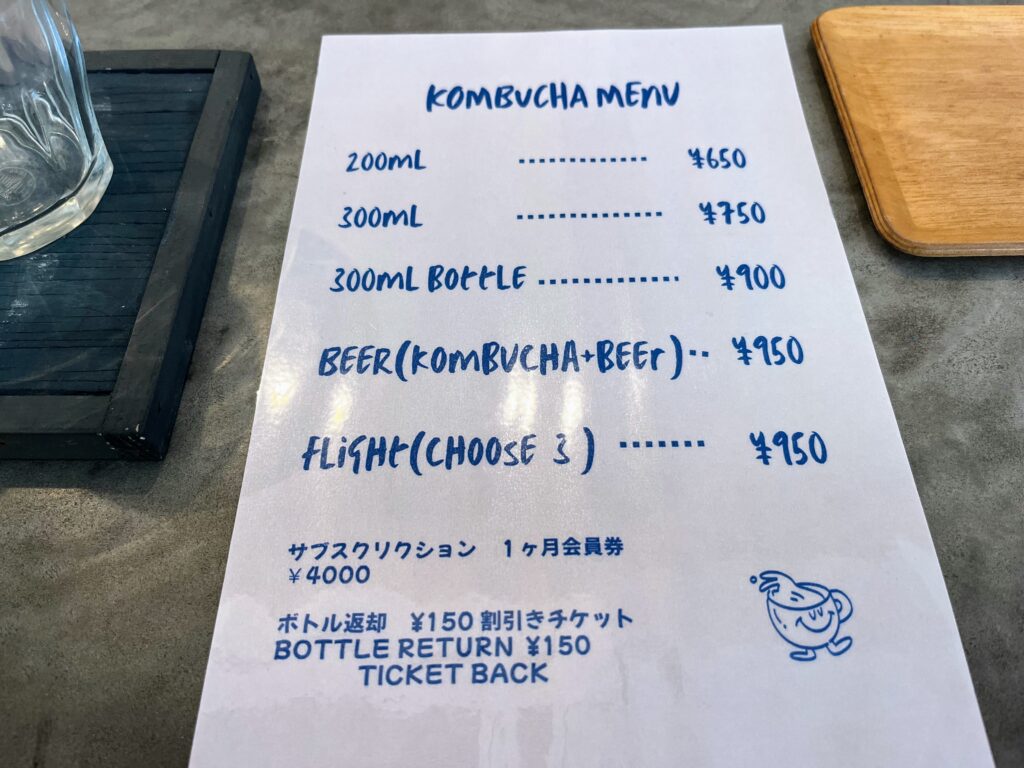 KOMBUCHA MENU
200mL ............. ¥650
300mL .............. ¥750
300mL BOTTLE ............. ¥900
BEER(KOMBUCHA+BEER) .. ¥950
FLIGHT(CHOOSE 3) ....... ¥950
サブスクリクション 1ヶ月会員券
¥4000
ボトル返却 ¥150 割引きチケット
BOTTLE RETURN ¥150
TICKET BACK